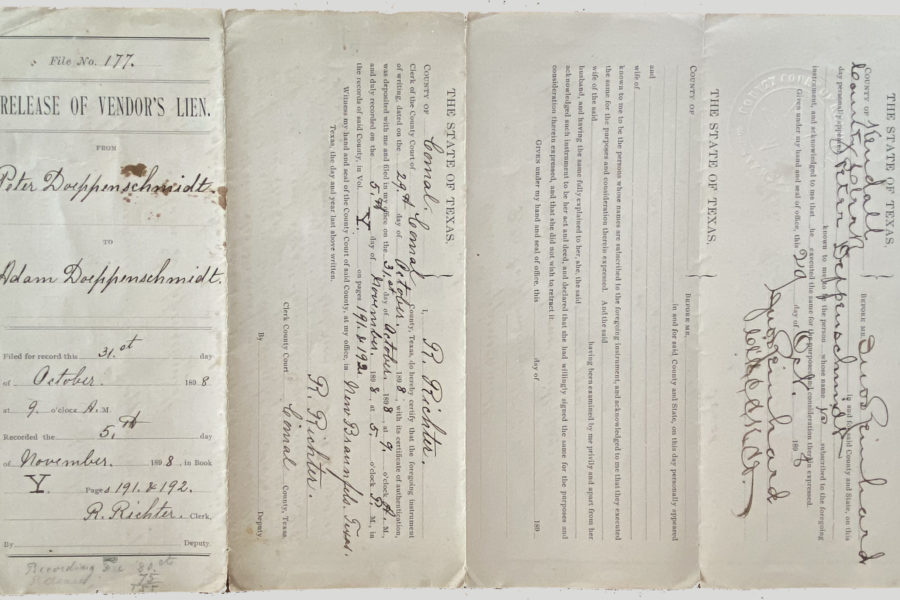 File No. 177.
RELEASE OF VENDOR'S LIEN.
FROM
Peter Doeppenschmidt.
TO
Adam Doeppenschmidt.
Filed for record this 31.st day
of October. 1898
at 9. o'clock A. M.
Recorded the 5.th day
of November. 1898, in Book
Y. Pages 191. & 192.
R. Richter. Clerk.
By Deputy.
Recording
THE STATE OF TEXAS.
COUNTY OF Comal. I, R. Richter.
Clerk of the County Court of Comal County, Texas, do hereby certify that the foregoing instrument
of writing, dated on the 29.th day of October. 1898, with its certificate of authentication,
was deposited with me and filed in my office on the 31.st day of October. 1898 at 9. o'clock A. M.,
and duly recorded on the 5.th day of November. 1898, at 5. o'clock P. M., in
the records of said County, in Vol. Y. on pages 191. & 192.
Witness my hand and seal of the County Court of said County, at my office, in New Braunfels. Texas.
Texas, the day and year last above written.
R. Richter.
Clerk County Court Comal County, Texas.
By Deputy
THE STATE OF TEXAS.
COUNTY OF BEFORE ME,
in and for said County and State, on this day personally appeared
and
wife of
known to me to be the persons whose names are subscribed to the foregoing instrument, and acknowledged to me that they executed
the same for the purposes and consideration therein expressed. And the said
wife of the said having been examined by me privily and apart from her
husband, and having the same fully explained to her, she, the said
acknowledged such instrument to be her act and deed, and declared that she had willingly signed the same for the purposes and
consideration therein expressed, and that she did not wish to retract it.
GIVEN under my hand and seal of office, this day of 189
THE STATE OF TEXAS.
COUNTY OF Kendall BEFORE ME, Reinhard
County Clerk in and for said County and State, on this
day personally appeared Peter Doeppenschmidt
known to me to be the person whose name is subscribed to the foregoing
instrument, and acknowledged to me that he executed the same for the purposes and consideration therein expressed.
Given under my hand and seal of office, this 29 day of Oct. 1898
Reinhard